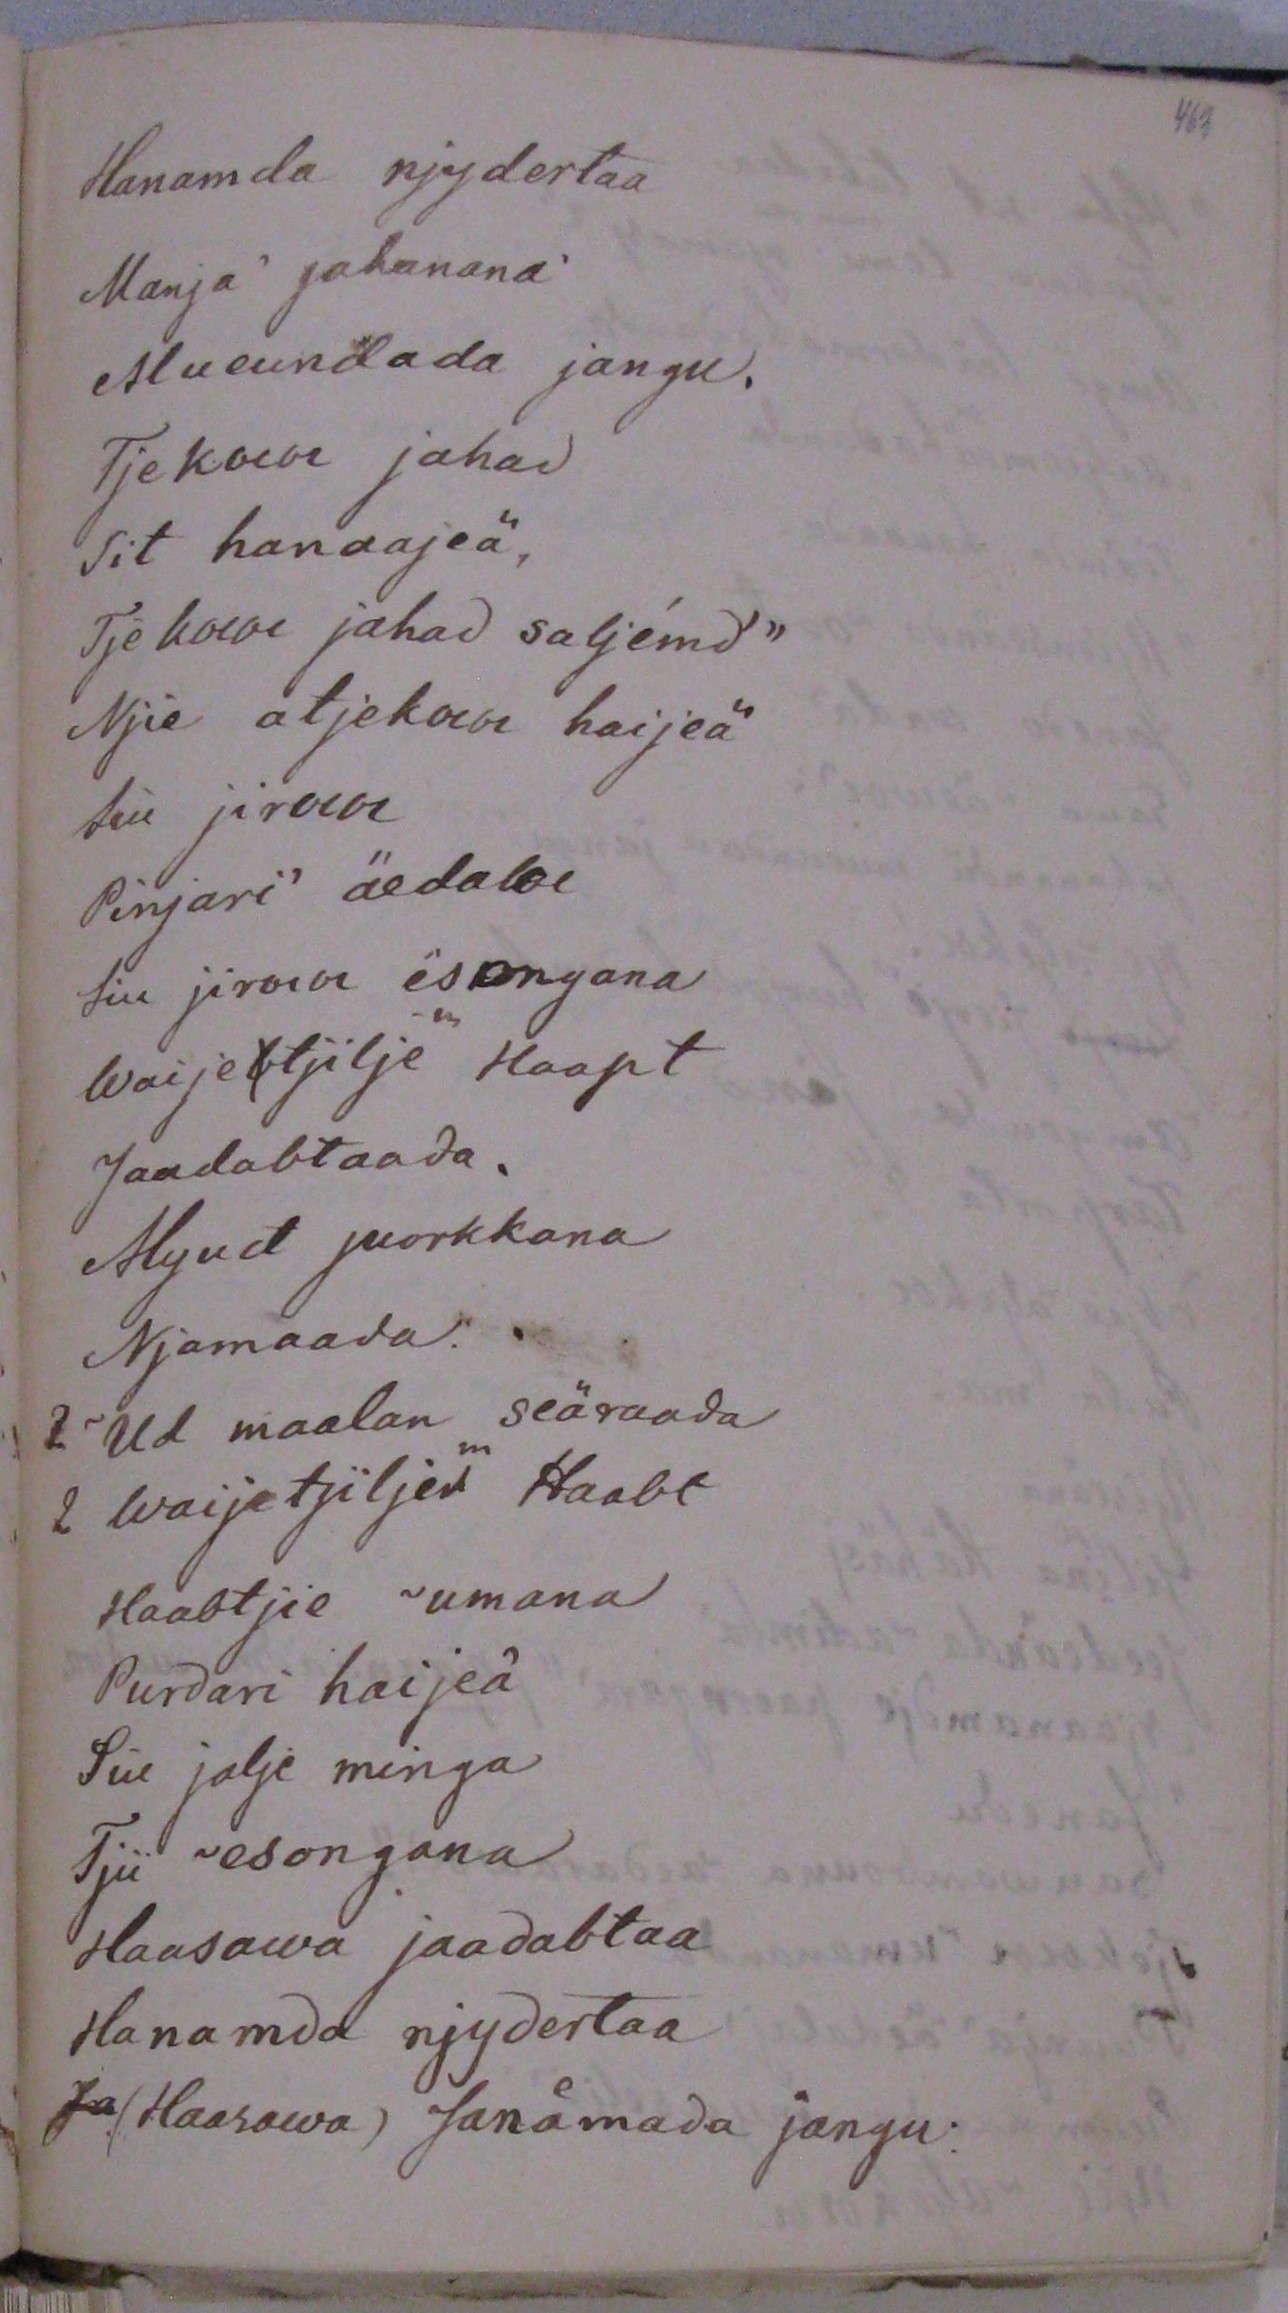 467
Hanamda njydertaa
Manja' jahanana'
Mueundada jangu.
Tjekowe jahad
Sit hanaajeä,
Tjekowe jahad saljémd'"
Njie atjekowe haijeä"
Siu jirowe
Pinjari' äedaloe
Siu jirowe ësongana
Waijetjilje"m Haapt
Jaadabtaada.
Myud juorkkana
Njamaada.
2 ~Ud maalan seäraada
2 Waijetjilje"m Haabt
Haabtjie ~umana
Purdari haijeä
Siu jalje minga
Tjii ~esongana
Haasawa jaadabtaa
Hanamda njydertaa
Ja (Haasawa) Janämada jangu.